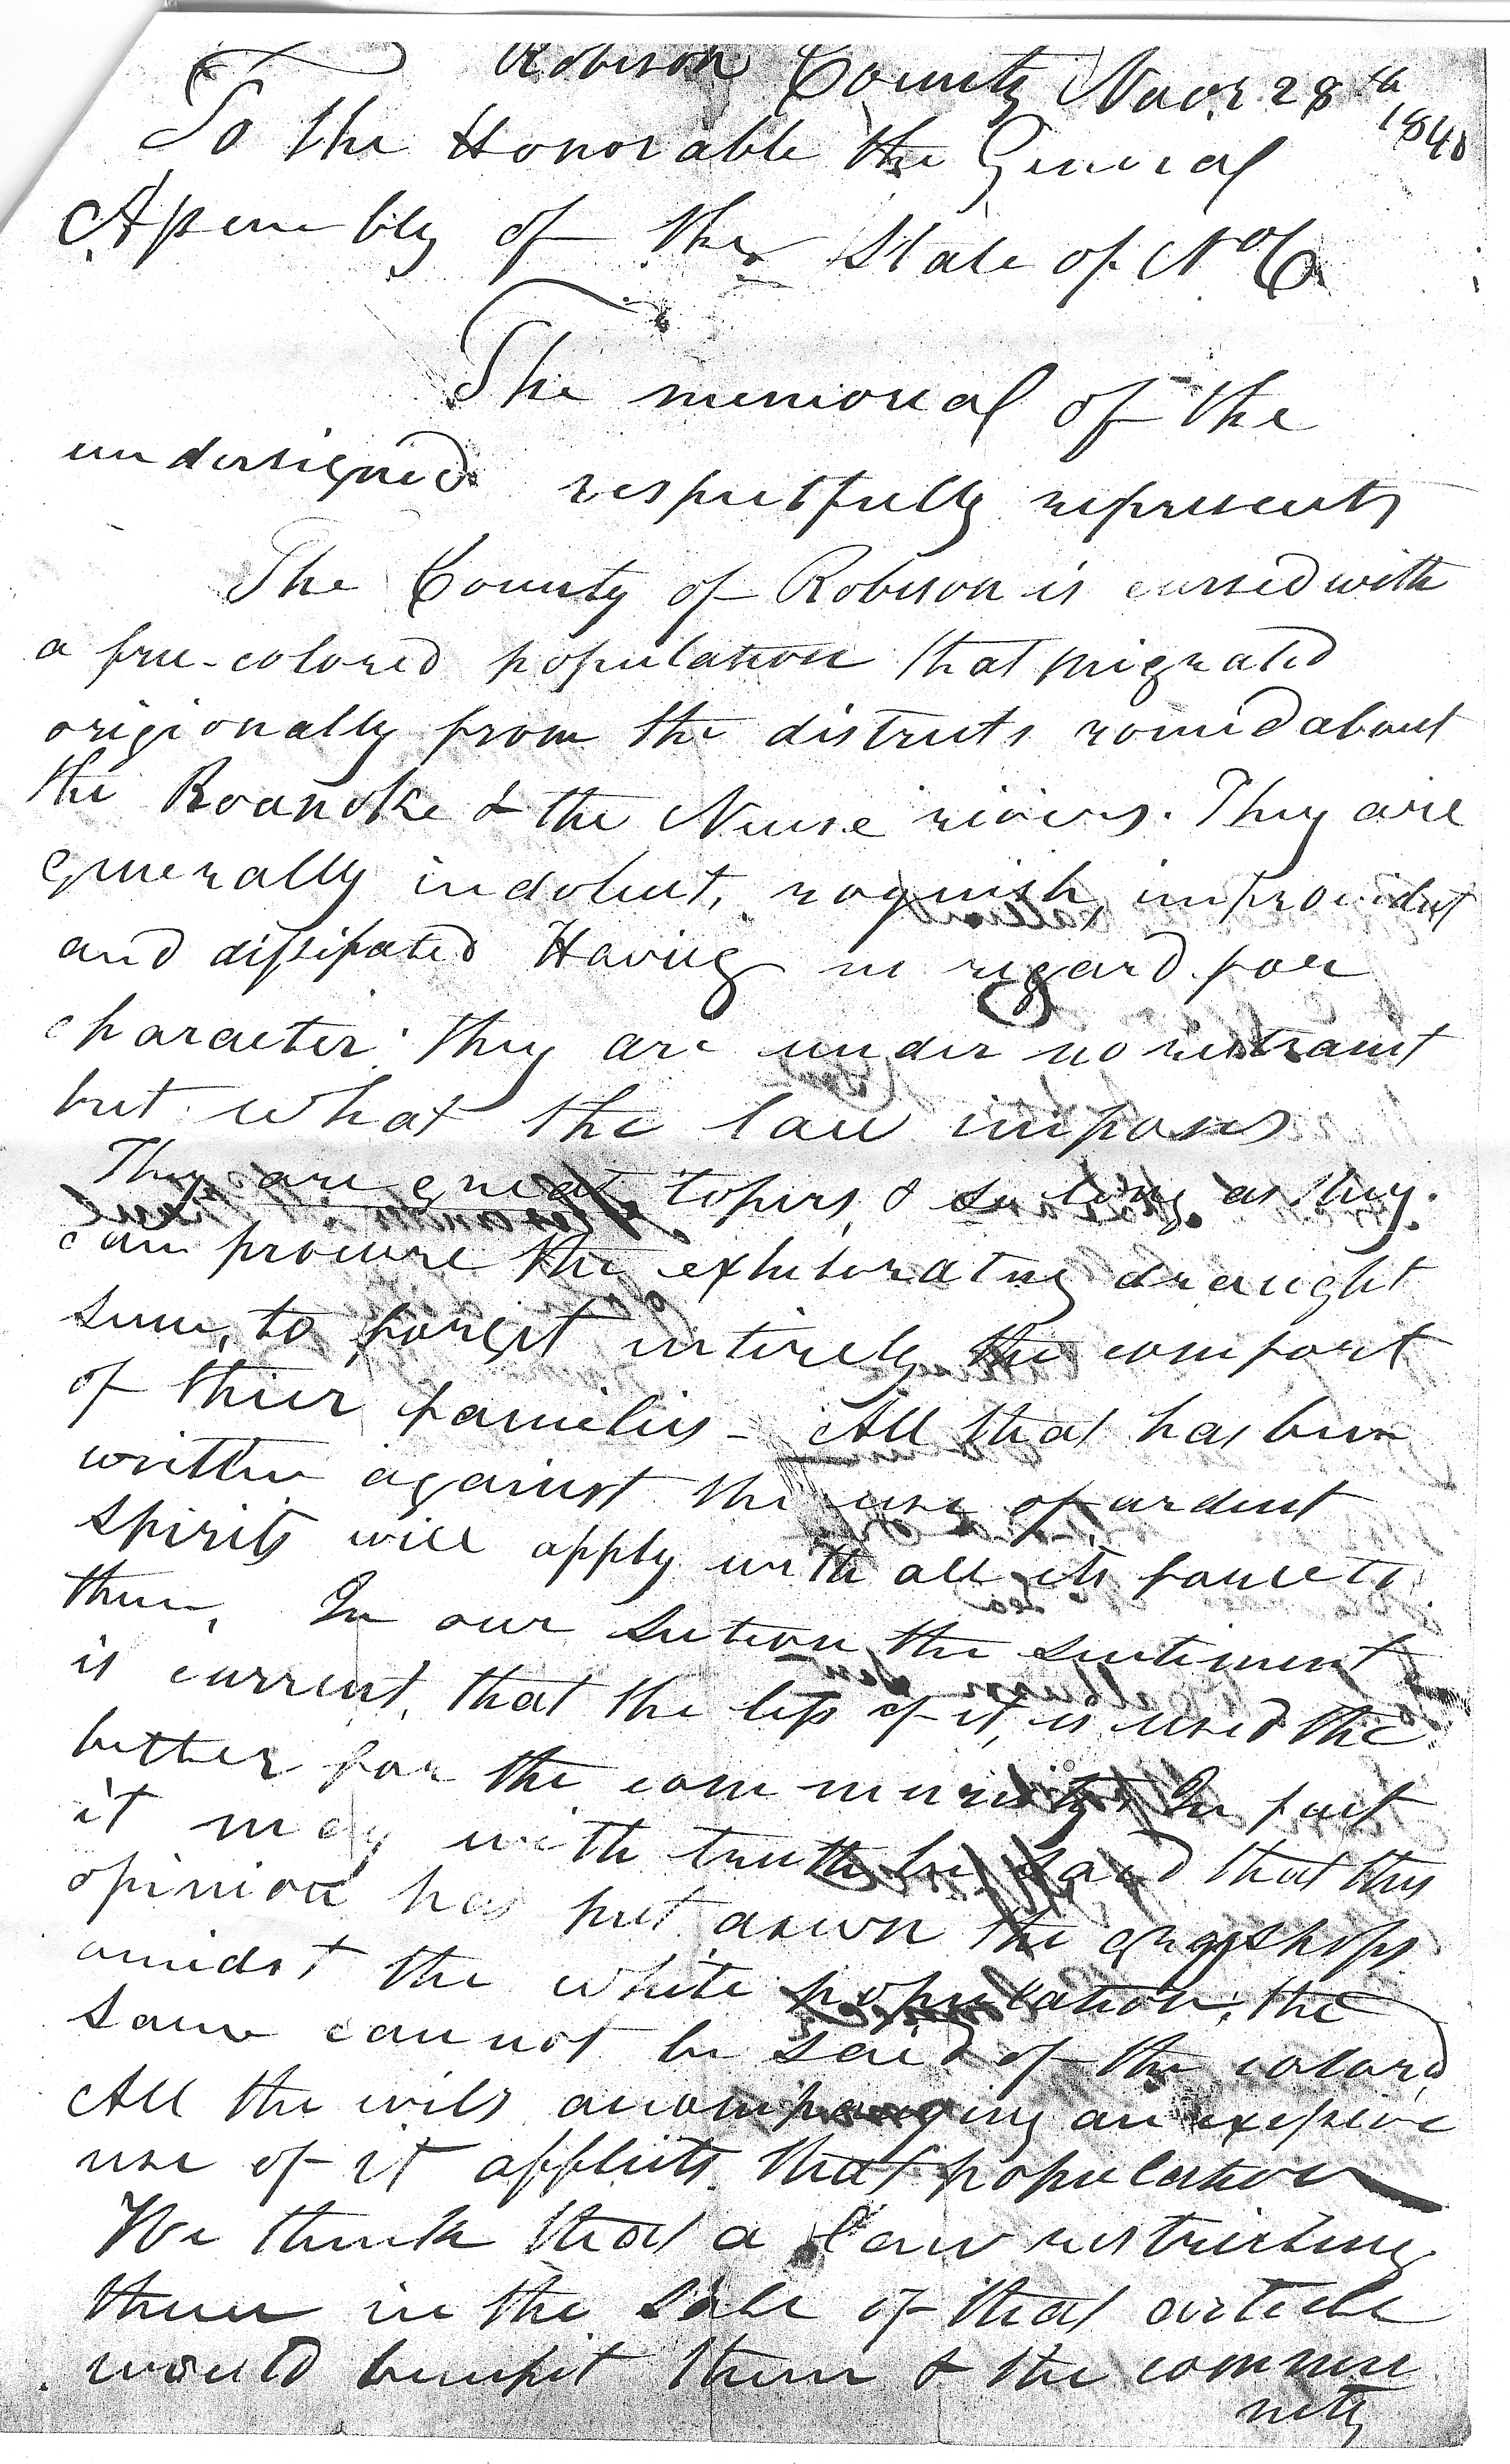 Robison County Novr. 28th
1840
To the Honorable the General
Assembly of the State of No Ca
The memorial of the
undersigned respectfully represents
The County of Robison is cursed with
a free-colored population that migrated
origionally from the districts round about
the Roanoke & the Neuse rivers. They are
generally indolent, roguish, improvident
and dissipated Having no regard for
character they are under no restraint
but what the law imposes
They are great topers, & so long as they
can procure the exhilorating draught
seem, to forget intirely the comfort
of thier families – All that has been
written against the use of ardent
spirits will apply with all its force to
them. In our section the sentiment
is current, that the less of it, is used the
better for the community. In fact
it may with truth be said that this
opinion has put down the grogshops
amidst the white population; the
same cannot be said of the colored
All the evils accompanying an excessive
use of it afflicts that population
We think that a law restricting
them in the sale of that article
would benefit them & the commu
nity